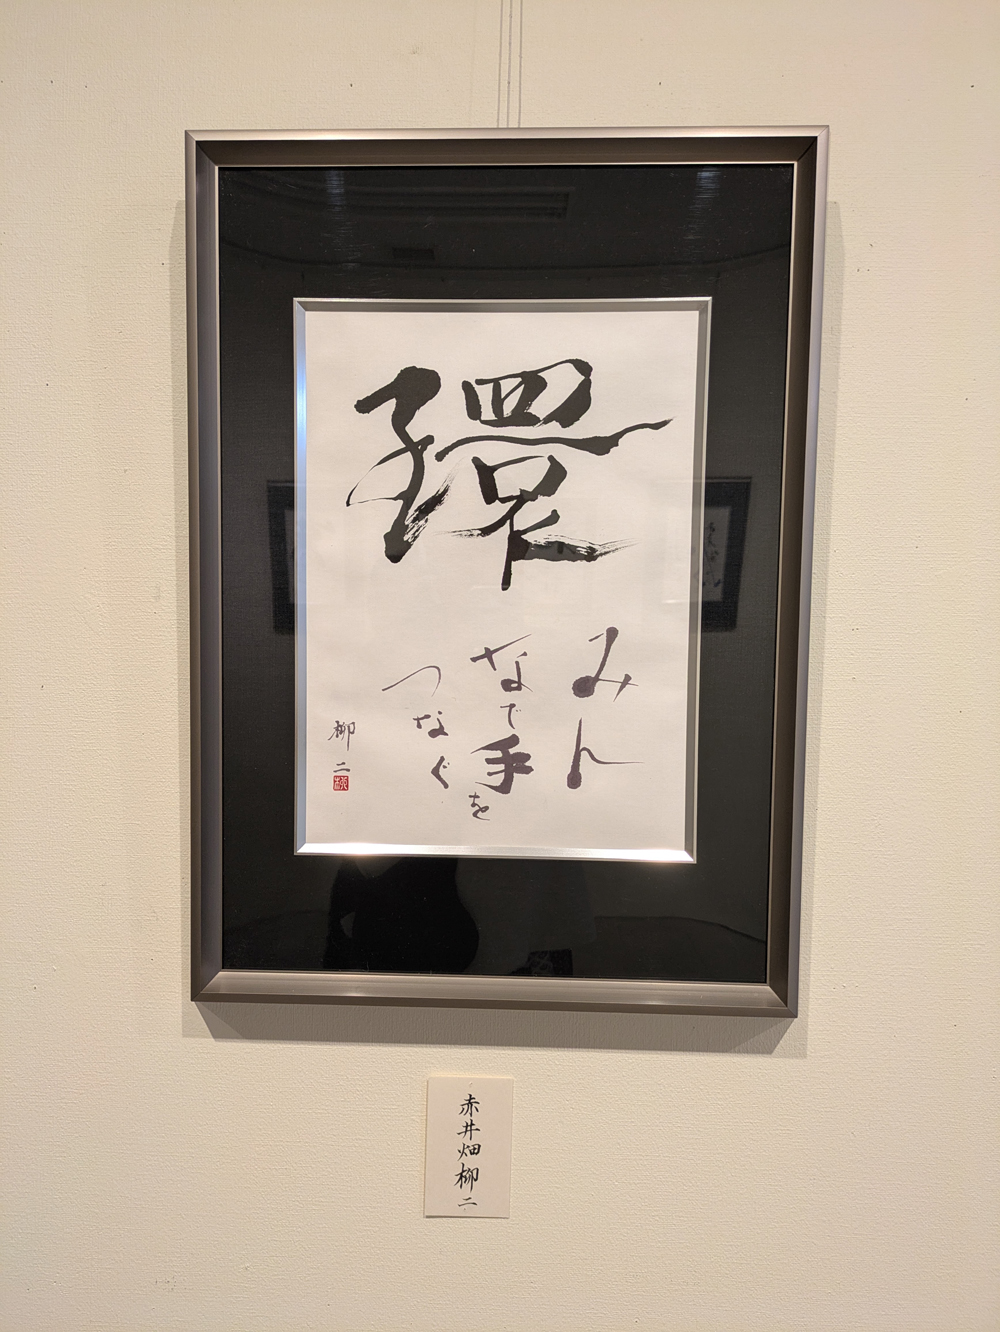 環
みん
なで手を
つなぐ
柳二
赤井畑柳二